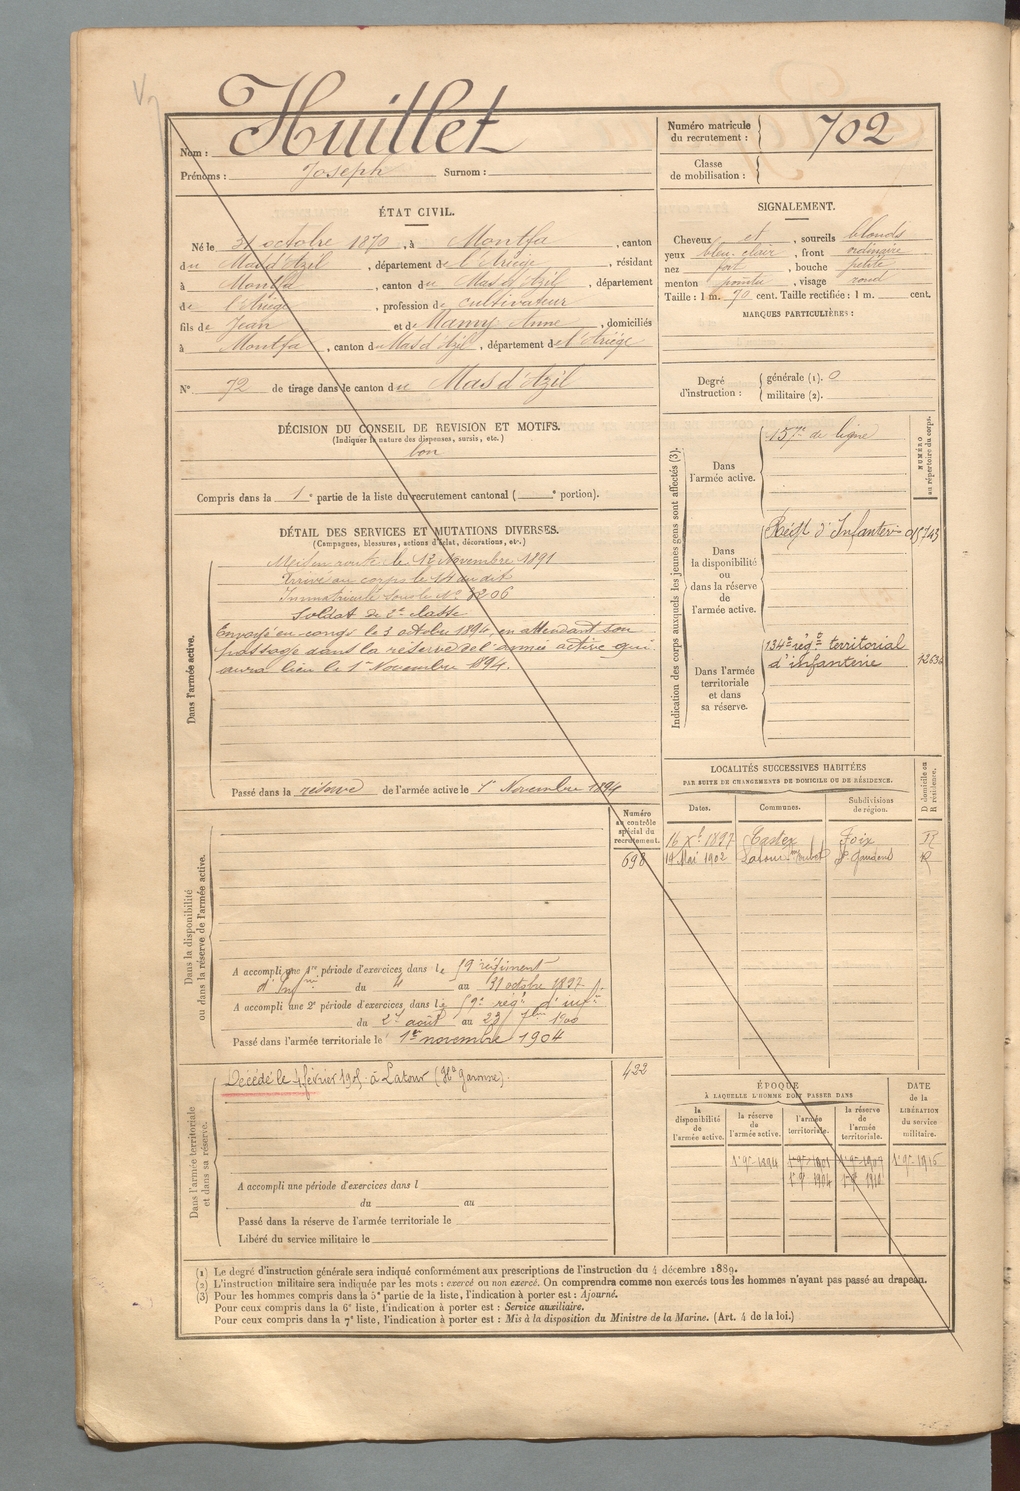 Huillet
Nom :
Prénoms : Joseph Surnom :
Numéro matricule
du recrutement : 702
Classe
de mobilisation :
ÉTAT CIVIL.
Né le 31 octobre 1870, à Montfa, canton
du Mas d'Azil, département de l'Ariège, résidant
à Montfa, canton du Mas d'Azil, département
de l'Ariège, profession de cultivateur
fils de Jean et de Mamy Anne, domiciliés
à Montfa, canton du Mas d'Azil, département de l'Ariège
N° 72 de tirage dans le canton du Mas d'Azil
SIGNALEMENT.
Cheveux et, sourcils blonds
yeux bleu clair, front ordinaire
nez fort, bouche petite
menton pointu, visage rond
Taille : 1 m. 70 cent. Taille rectifiée : 1 m. cent.
MARQUES PARTICULIÈRES :
Degré
d'instruction :
générale (1). 0
militaire (2).
DÉCISION DU CONSEIL DE REVISION ET MOTIFS.
(Indiquer la nature des dispenses, sursis, etc.)
bon
Compris dans la 1e partie de la liste du recrutement cantonal ( e portion).
DÉTAIL DES SERVICES ET MUTATIONS DIVERSES.
(Campagnes, blessures, actions d'éclat, décorations, etc.)
Dans l'armée active.
Mis en route le 12 novembre 1891
Arrivé au corps le 14 du dit
Immatriculé sous le N°
Soldat de 2e classe
Envoyé en congé le 3 octobre 1894, en attendant son
passage dans la réserve de l'armée active qui
aura lieu le 1er novembre 1894.
Passé dans la réserve de l'armée active le 1er Novembre 1894
Indication des corps auxquels les jeunes gens sont affectés (3).
NUMÉRO
au répertoire du corps.
Dans
l'armée active.
de ligne
Dans
la disponibilité
ou
dans la réserve de
l'armée active.
d'Infanterie 015743
Dans l'armée
territoriale
et dans
sa réserve.
134e régt territorial
d'infanterie
LOCALITÉS SUCCESSIVES HABITÉES
PAR SUITE DE CHANGEMENTS DE DOMICILE OU DE RÉSIDENCE.
D domicile ou
R résidence.
Dates. Communes. Subdivisions
de région.
16 Xbre 1897 Castex Foix R
19 Mai 1902 Latour St Gaudens R
Dans la disponibilité
ou dans la réserve de l'armée active.
Numéro
au contrôle
spécial du
recrutement.
698
A accompli une 1re période d'exercices dans le 59 régiment
d'Infrie du 4 au 31 octobre 1897
A accompli une 2e période d'exercices dans le 59e régt d'inft
du 27 août au 23 7bre 1900
Passé dans l'armée territoriale le 1er novembre 1904
Dans l'armée territoriale
et dans sa réserve.
Décédé le 4 février 1905 à Latour (Hte Garonne).
422
A accompli une période d'exercices dans l
du au
Passé dans la réserve de l'armée territoriale le
Libéré du service militaire le
ÉPOQUE
À LAQUELLE L'HOMME DOIT PASSER DANS
DATE
de la
LIBÉRATION
du service
militaire.
la
disponibilité
de
l'armée active.
la réserve
de
l'armée active.
l'armée
territoriale.
la réserve
de
l'armée
territoriale.
1er 9bre 1894
1er 9bre 1904
(1) Le degré d'instruction générale sera indiqué conformément aux prescriptions de l'instruction du 4 décembre 1889.
(2) L'instruction militaire sera indiquée par les mots : exercé ou non exercé. On comprendra comme non exercés tous les hommes n'ayant pas passé au drapeau.
(3) Pour les hommes compris dans la 5e partie de la liste, l'indication à porter est : Ajourné.
Pour ceux compris dans la 6e liste, l'indication à porter est : Service auxiliaire.
Pour ceux compris dans la 7e liste, l'indication à porter est : Mis à la disposition du Ministre de la Marine. (Art. 4 de la loi.)